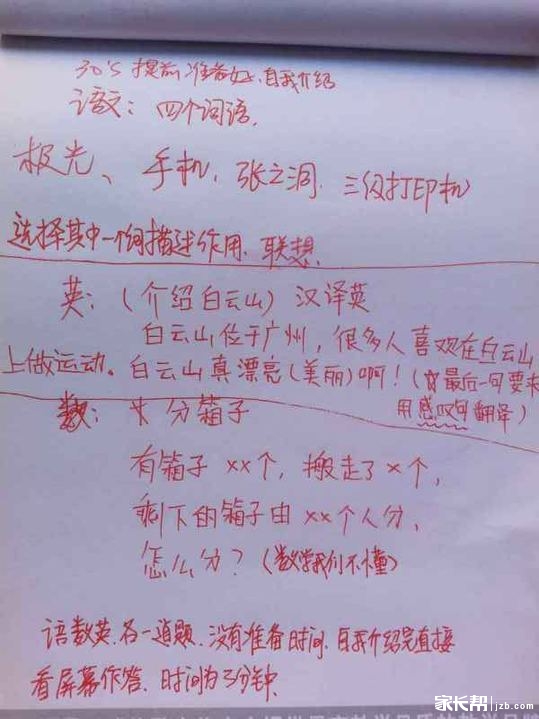 30's 提前准备好、自我介绍
语文：四个词语，
极光、手机，张之洞，三级打印机
选择其中一个词描述作用、联想，
英：（介绍白云山）汉译英
白云山位于广州，很多人喜欢在白云山
上做运动。白云山真漂亮（美丽）啊！（☆最后一句要求
用感叹句翻译）
数：分箱子
有箱子××个，搬走了×个，
剩下的箱子由××个人分，
怎么分？（数学我们不懂）
语数英，各一道题、没有准备时间、自我介绍完直接
看屏幕作答、时间为3分钟、
家长帮 jzb.com